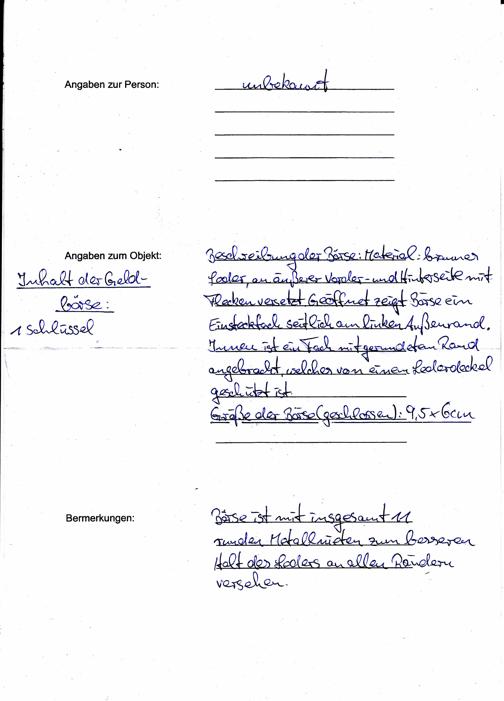 Angaben zur Person:
unbekannt
Angaben zum Objekt:
Inhalt der Geld-
börse:
1 Schlüssel
Beschreibung der Börse: Material: braunes
Leder, an äußerer Vorder- und Hinterseite mit
Flecken versetzt. Geöffnet zeigt Börse ein
Einsteckfach seitlich am linken Außenrand.
Innen ist ein Fach mit gerundeten Rand
angebracht, welcher von einen Lederdeckel
geschützt ist
Größe der Börse (geschlossen): 9,5 x 6cm
Bermerkungen:
Börse ist mit insgesamt 11
runden Metallnieten zum besseren
Halt des Leders an allen Rändern
versehen.